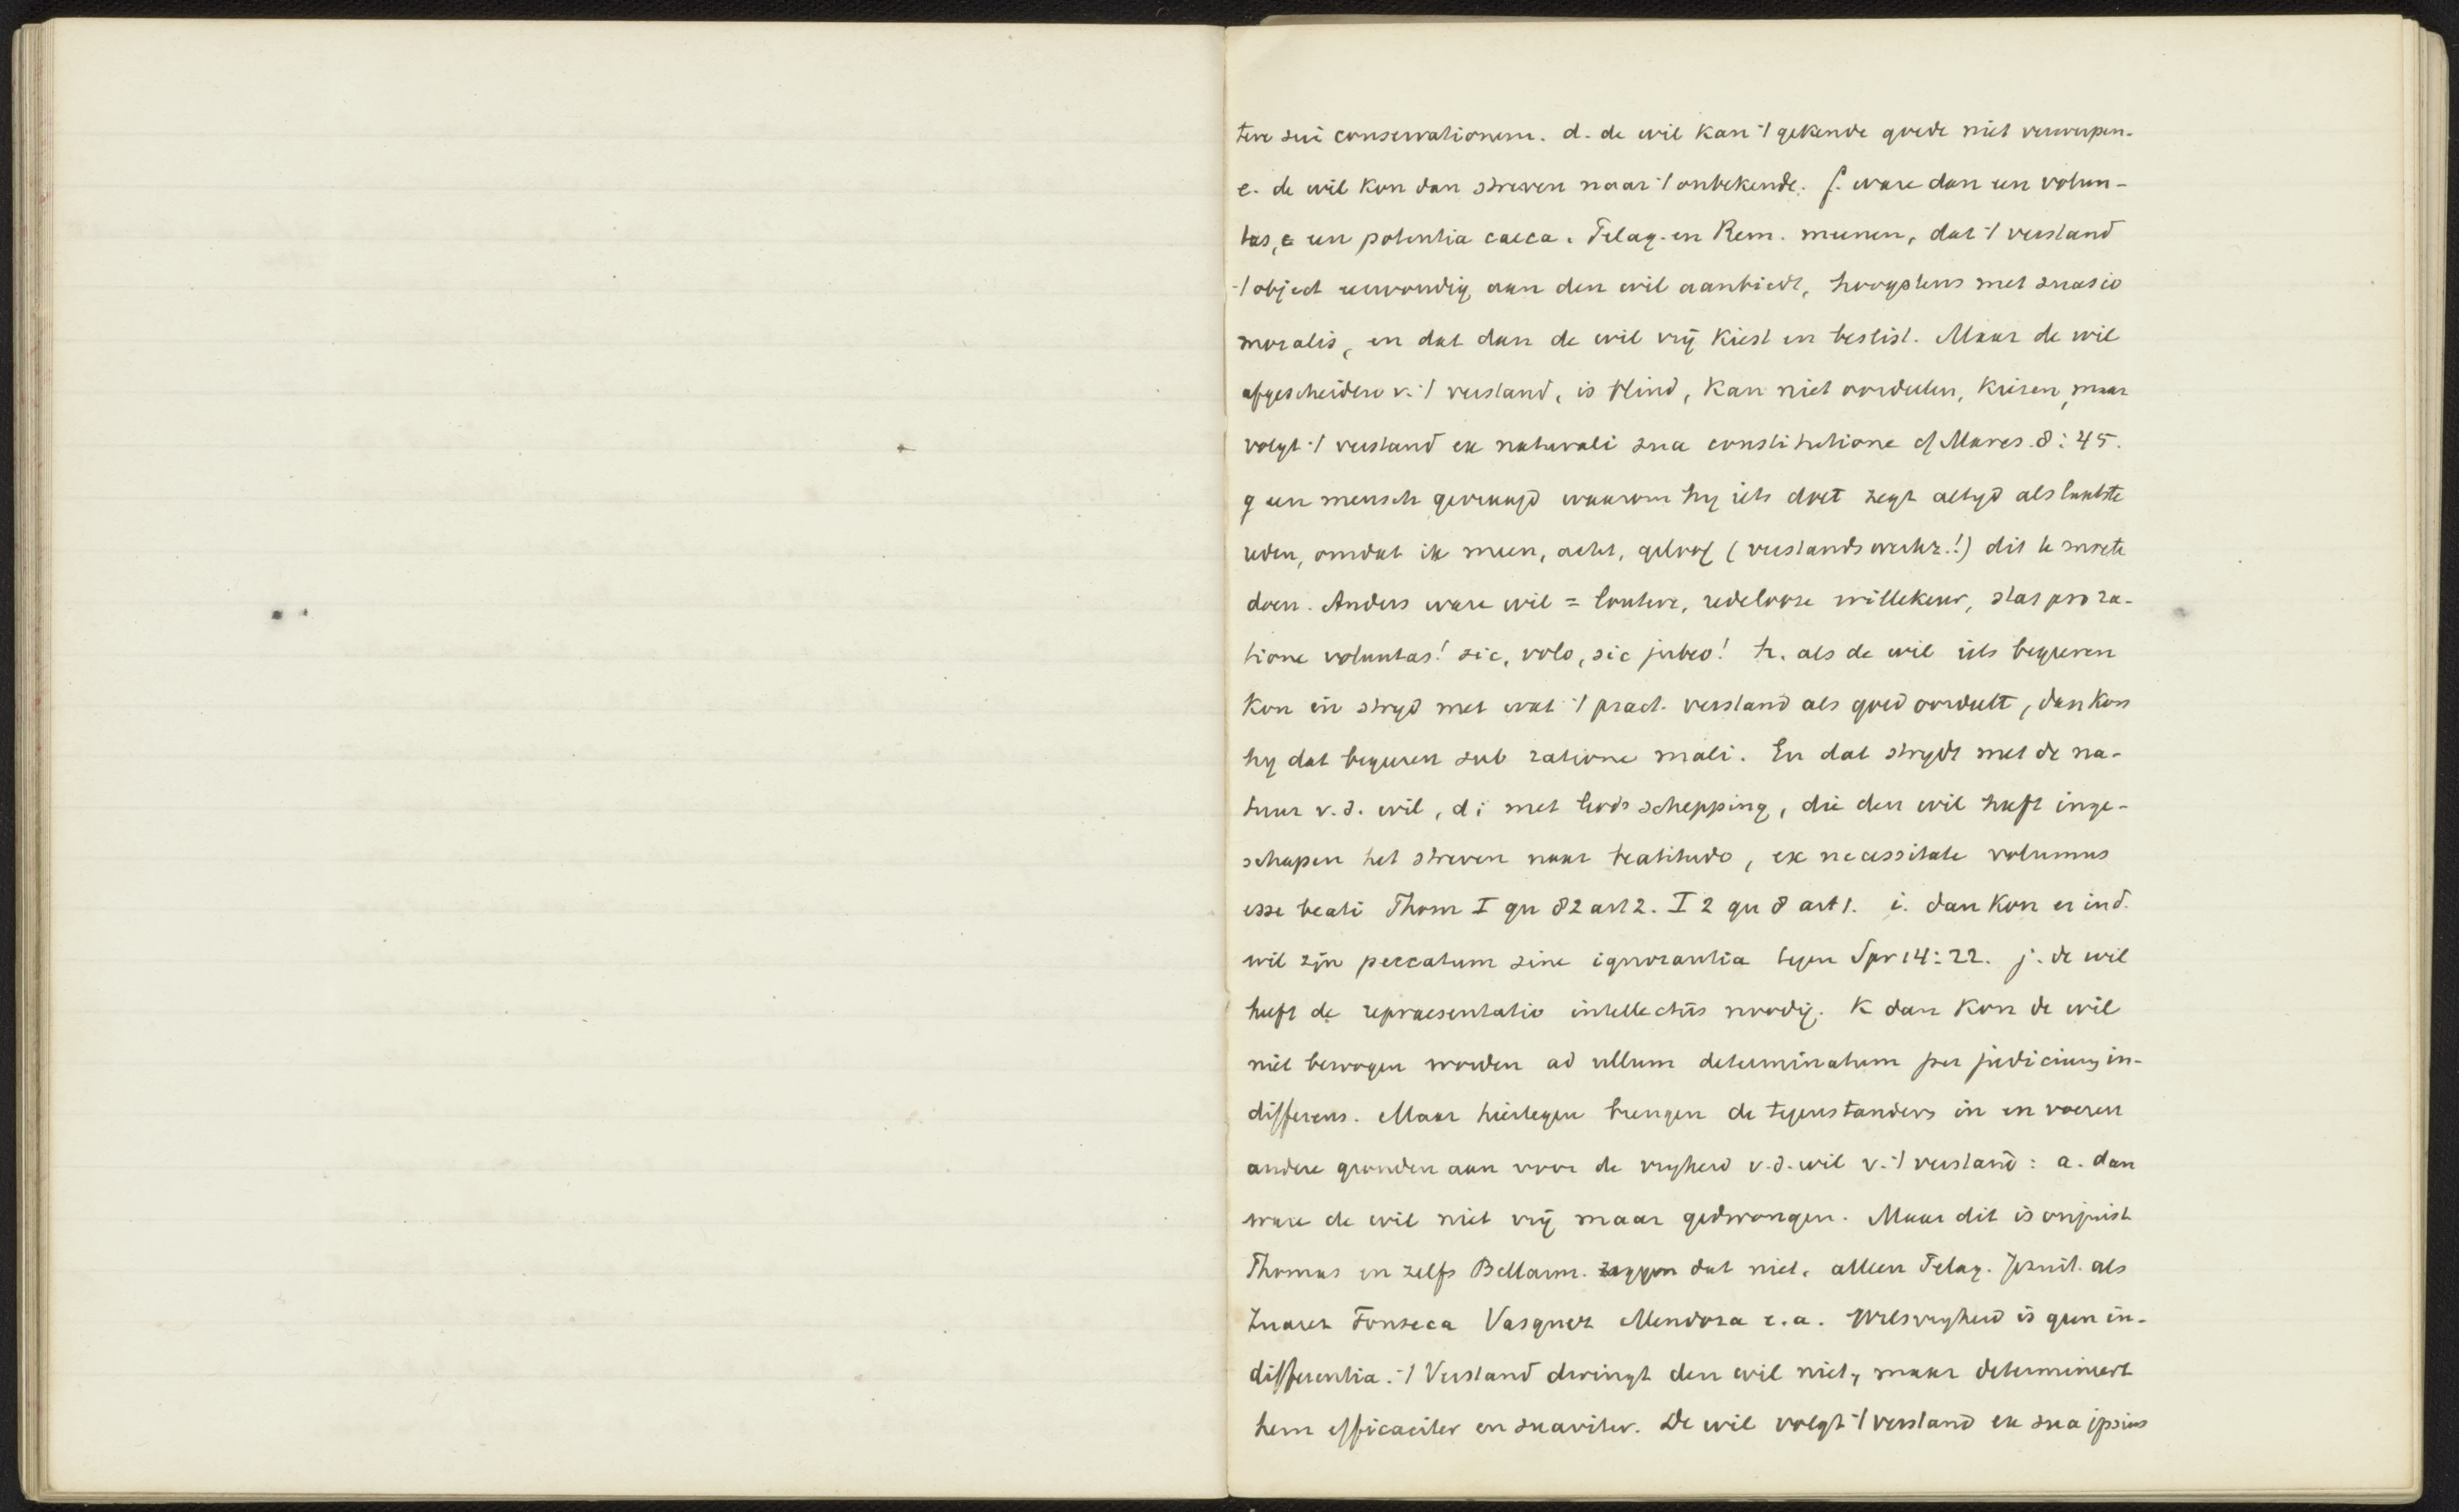 tere sui conservationem. d. de wil kan 't gekende goede niet verwerpen.
e. de wil kon dan streven naar 't onbekende. f. ware dan een volun-
tas, een potentia caeca. Pelag. en Rem. meenen, dat 't verstand
't object eenvoudig aan den wil aanbiedt, hoogstens met suasio
moralis, en dat dan de wil vrij kiest en beslist. Maar de wil
afgescheiden v. 't verstand, is blind, kan niet oordeelen, kiezen, maar
volgt 't verstand ex naturali sua constitutione cf Mares. 8:45.
g een mensch gevraagd waarom hy iets doet zegt altyd als laatste
reden, omdat ik meen, acht, geloof (verstandswerkz.!) dit te moete
doen. Anders ware wil = loutere, redelooze willekeur, stat pro ra-
tione voluntas! sic, volo, sic jubeo! h. als de wil iets begeeren
kon in stryd met wat 't pract. verstand als goed oordeelt, dan kon
hy dat begeeren sub ratione mali. En dat strydt met de na-
tuur v.d. wil, d i met Gods schepping, die den wil heeft inge-
schapen het streven naar beatitudo, ex necessitate volumus
esse beati Thom I qu 82 art 2. I 2 qu 8 art 1. i. dan kon er in d.
wil zijn peccatum sine ignorantia tegen Spr 14:22. j. de wil
heeft de repraesentatio intellectûs noodig. k dan kon de wil
niet bewogen worden ad ullum determinatum per judicium in-
differens. Maar hiertegen brengen de tegenstanders in en voeren
andere gronden aan voor de vryheid v.d. wil v. 't verstand: a. dan
ware de wil niet vrij maar gedwongen. Maar dit is onjuist
Thomas en zelfs Bellarm. zeggen dat niet, alleen Pelag. Jesuit. als
Suarez Fonseca Vasquez Mendoza e.a. Wilsvryheid is geen in-
differentia. 't Verstand dwingt den wil niet, maar determineert
hem efficaciter en suaviter. De wil volgt 't verstand ex sua ipsius